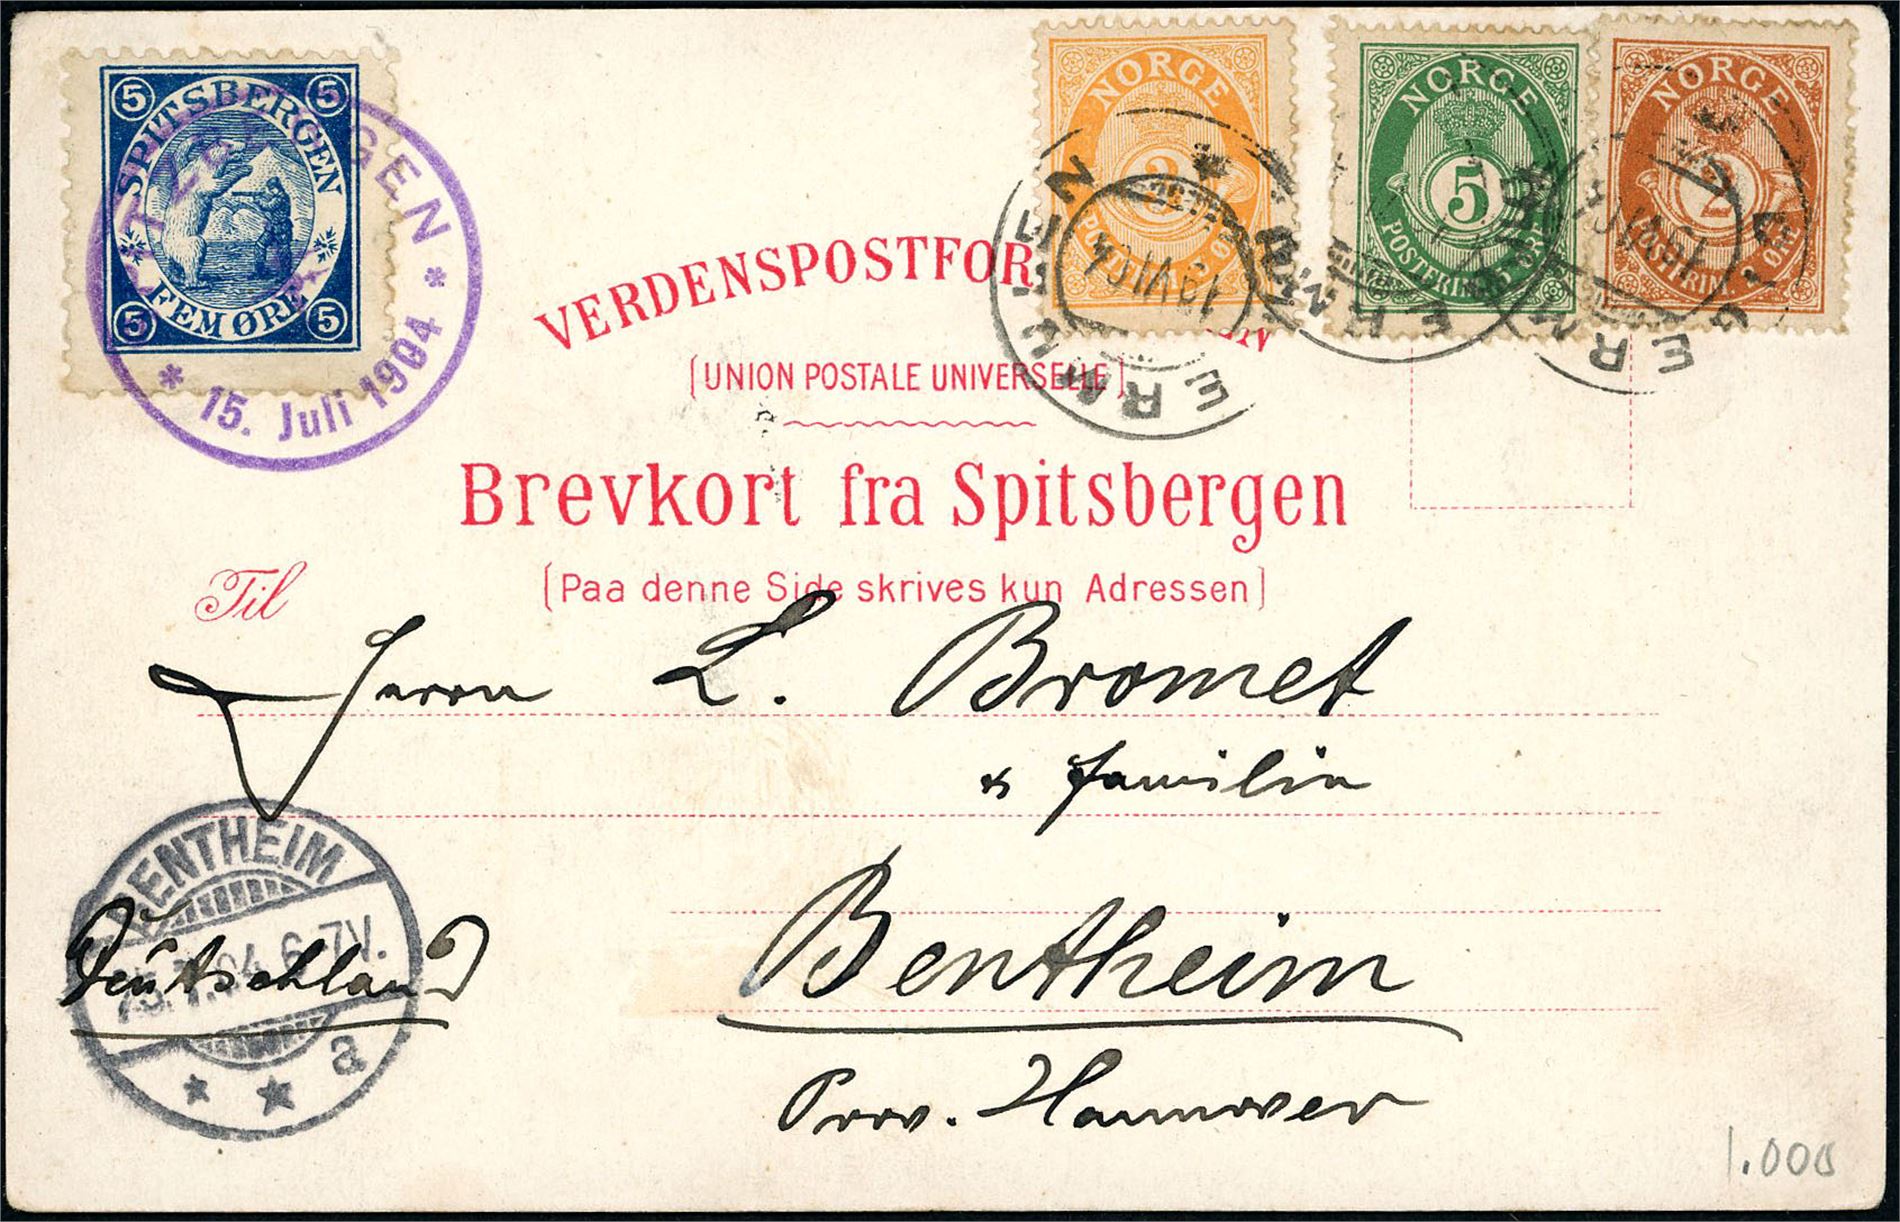 5 5
SPITSBERGEN
FEM ØRE
5 5
SPITZBERGEN
* 15. Juli 1904 *
NORGE
3
NORGE
5
POSTFRIM. 5 ØRE
NORGE
2
POSTFRIM ØRE
19 VII 04
VERDENSPOSTFOR
(UNION POSTALE UNIVERSELLE)
Brevkort fra Spitsbergen
(Paa denne Side skrives kun Adressen)
Til
Herrn L. Bromet
& familie
BENTHEIM
25.7.04 6-7V.
* * a
Bentheim
Deutschland
Prov. Hannover
1.000